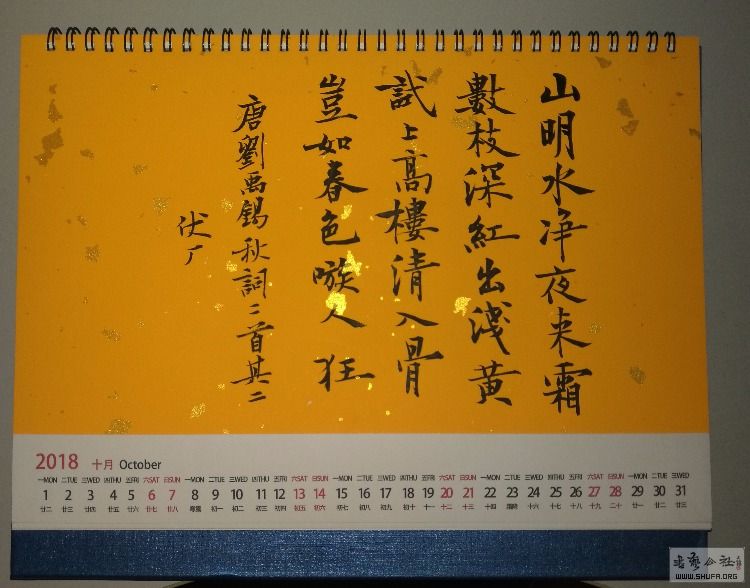 山明水净夜来霜
數枝深紅出淺黃
試上高樓清入骨
豈如春色嗾人狂
唐劉禹錫秋詞二首其二
伏厂
2018 十月 October
一MON 二TUE 三WED 四THU 五FRI 六SAT 日SUN 一MON 二TUE 三WED 四THU 五FRI 六SAT 日SUN 一MON 二TUE 三WED 四THU 五FRI 六SAT 日SUN 一MON 二TUE 三WED 四THU 五FRI 六SAT 日SUN 一MON 二TUE 三WED
1 2 3 4 5 6 7 8 9 10 11 12 13 14 15 16 17 18 19 20 21 22 23 24 25 26 27 28 29 30 31
廿二 廿三 廿四 廿五 廿六 廿七 廿八 寒露 初一 初二 初三 初四 初五 初六 初七 初八 初九 初十 十一 十二 十三 十四 霜降 十六 十七 十八 十九 二十 廿一 廿二 廿三
书艺公社
WWW.SHUFA.ORG